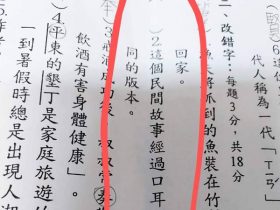 代人稱為一代「
二、改錯字：每題3分，共18分
將抓到的魚裝在竹
回家。
2.這個民間故事經過口耳
同的版本。
3.戒酒成功後，叔叔常募
飲酒有害身體健康」。
4.屏東的墾丁是家庭旅遊的
一到暑假時總是出現人潮